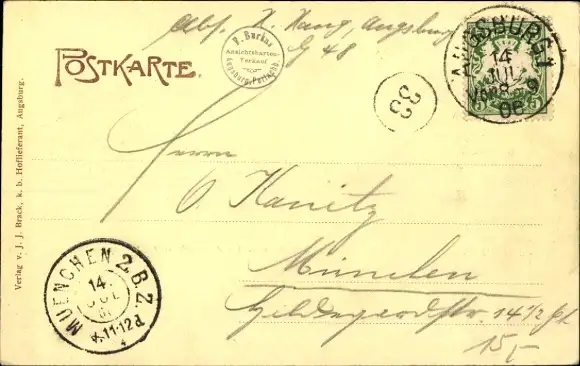 Abs. H. Hang, Augsburg
G 48
P. Burkus
Ansichtskarten-
Verkauf
Augsburg
POSTKARTE.
AUGSBURG 1
14
JUL
VORM 8-9
06
33
Herrn
O. Kanitz
München
14 1/2
15,-
MUENCHEN 2.B.Z.
14.
JUL
11-12
Verlag v. J. J. Brack, k. b. Hoflieferant, Augsburg.